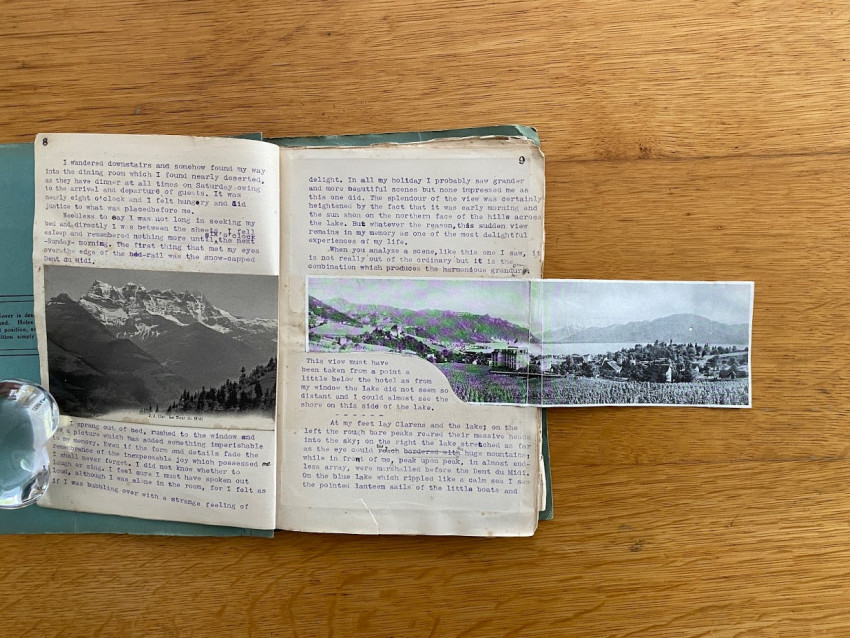 8
I wandered downstairs and somehow found my way
into the dining room which I found nearly deserted,
as they have dinner at all times on Saturday owing
to the arrival and departure of guests. It was
nearly eight o'clock and I felt hungry and did
justice to what was placed before me.
Needless to say I was not long in seeking my
bed and directly I was between the sheets I fell
asleep and remembered nothing more until six o'clock the next
-Sunday- morning. The first thing that met my eyes
over the edge of the bed-rail was the snow-capped
Dent du Midi.
La Dent du Midi
I sprang out of bed, rushed to the window and
a picture which has added something imperishable
to my memory. Even if the form and details fade the
remembrance of the inexpressable joy which possessed me
I shall never forget. I did not know whether to
laugh or sing. I feel sure I must have spoken out
loud, although I was alone in the room, for I felt as
if I was bubbling over with a strange feeling of
9
delight. In all my holiday I probably saw grander
and more beautiful scenes but none impressed me as
this one did. The splendour of the view was certainly
heightened by the fact that it was early morning and
the sun shon on the northern face of the hills across
the lake. But whatever the reason, this sudden view
remains in my memory as one of the most delightful
experiences of my life.
When you analyse a scene, like this one I saw, it
is not really out of the ordinary but it is the
combination which produces the harmonious grandure.
This view must have
been taken from a point a
little below the hotel as from
my window the lake did not seem so
distant and I could almost see the
shore on this side of the lake.
- - - - - -
At my feet lay Clarens and the lake; on the
left the rough bare peaks reared their massive heads
into the sky; on the right the lake stretched as far
as the eye could reach bordered with huge mountains;
while in front of me, peak upon peak, in almost end-
less array, were marshalled before the Dent du Midi.
On the blue lake which rippled like a calm sea I saw
the pointed lanteem sails of the little boats and